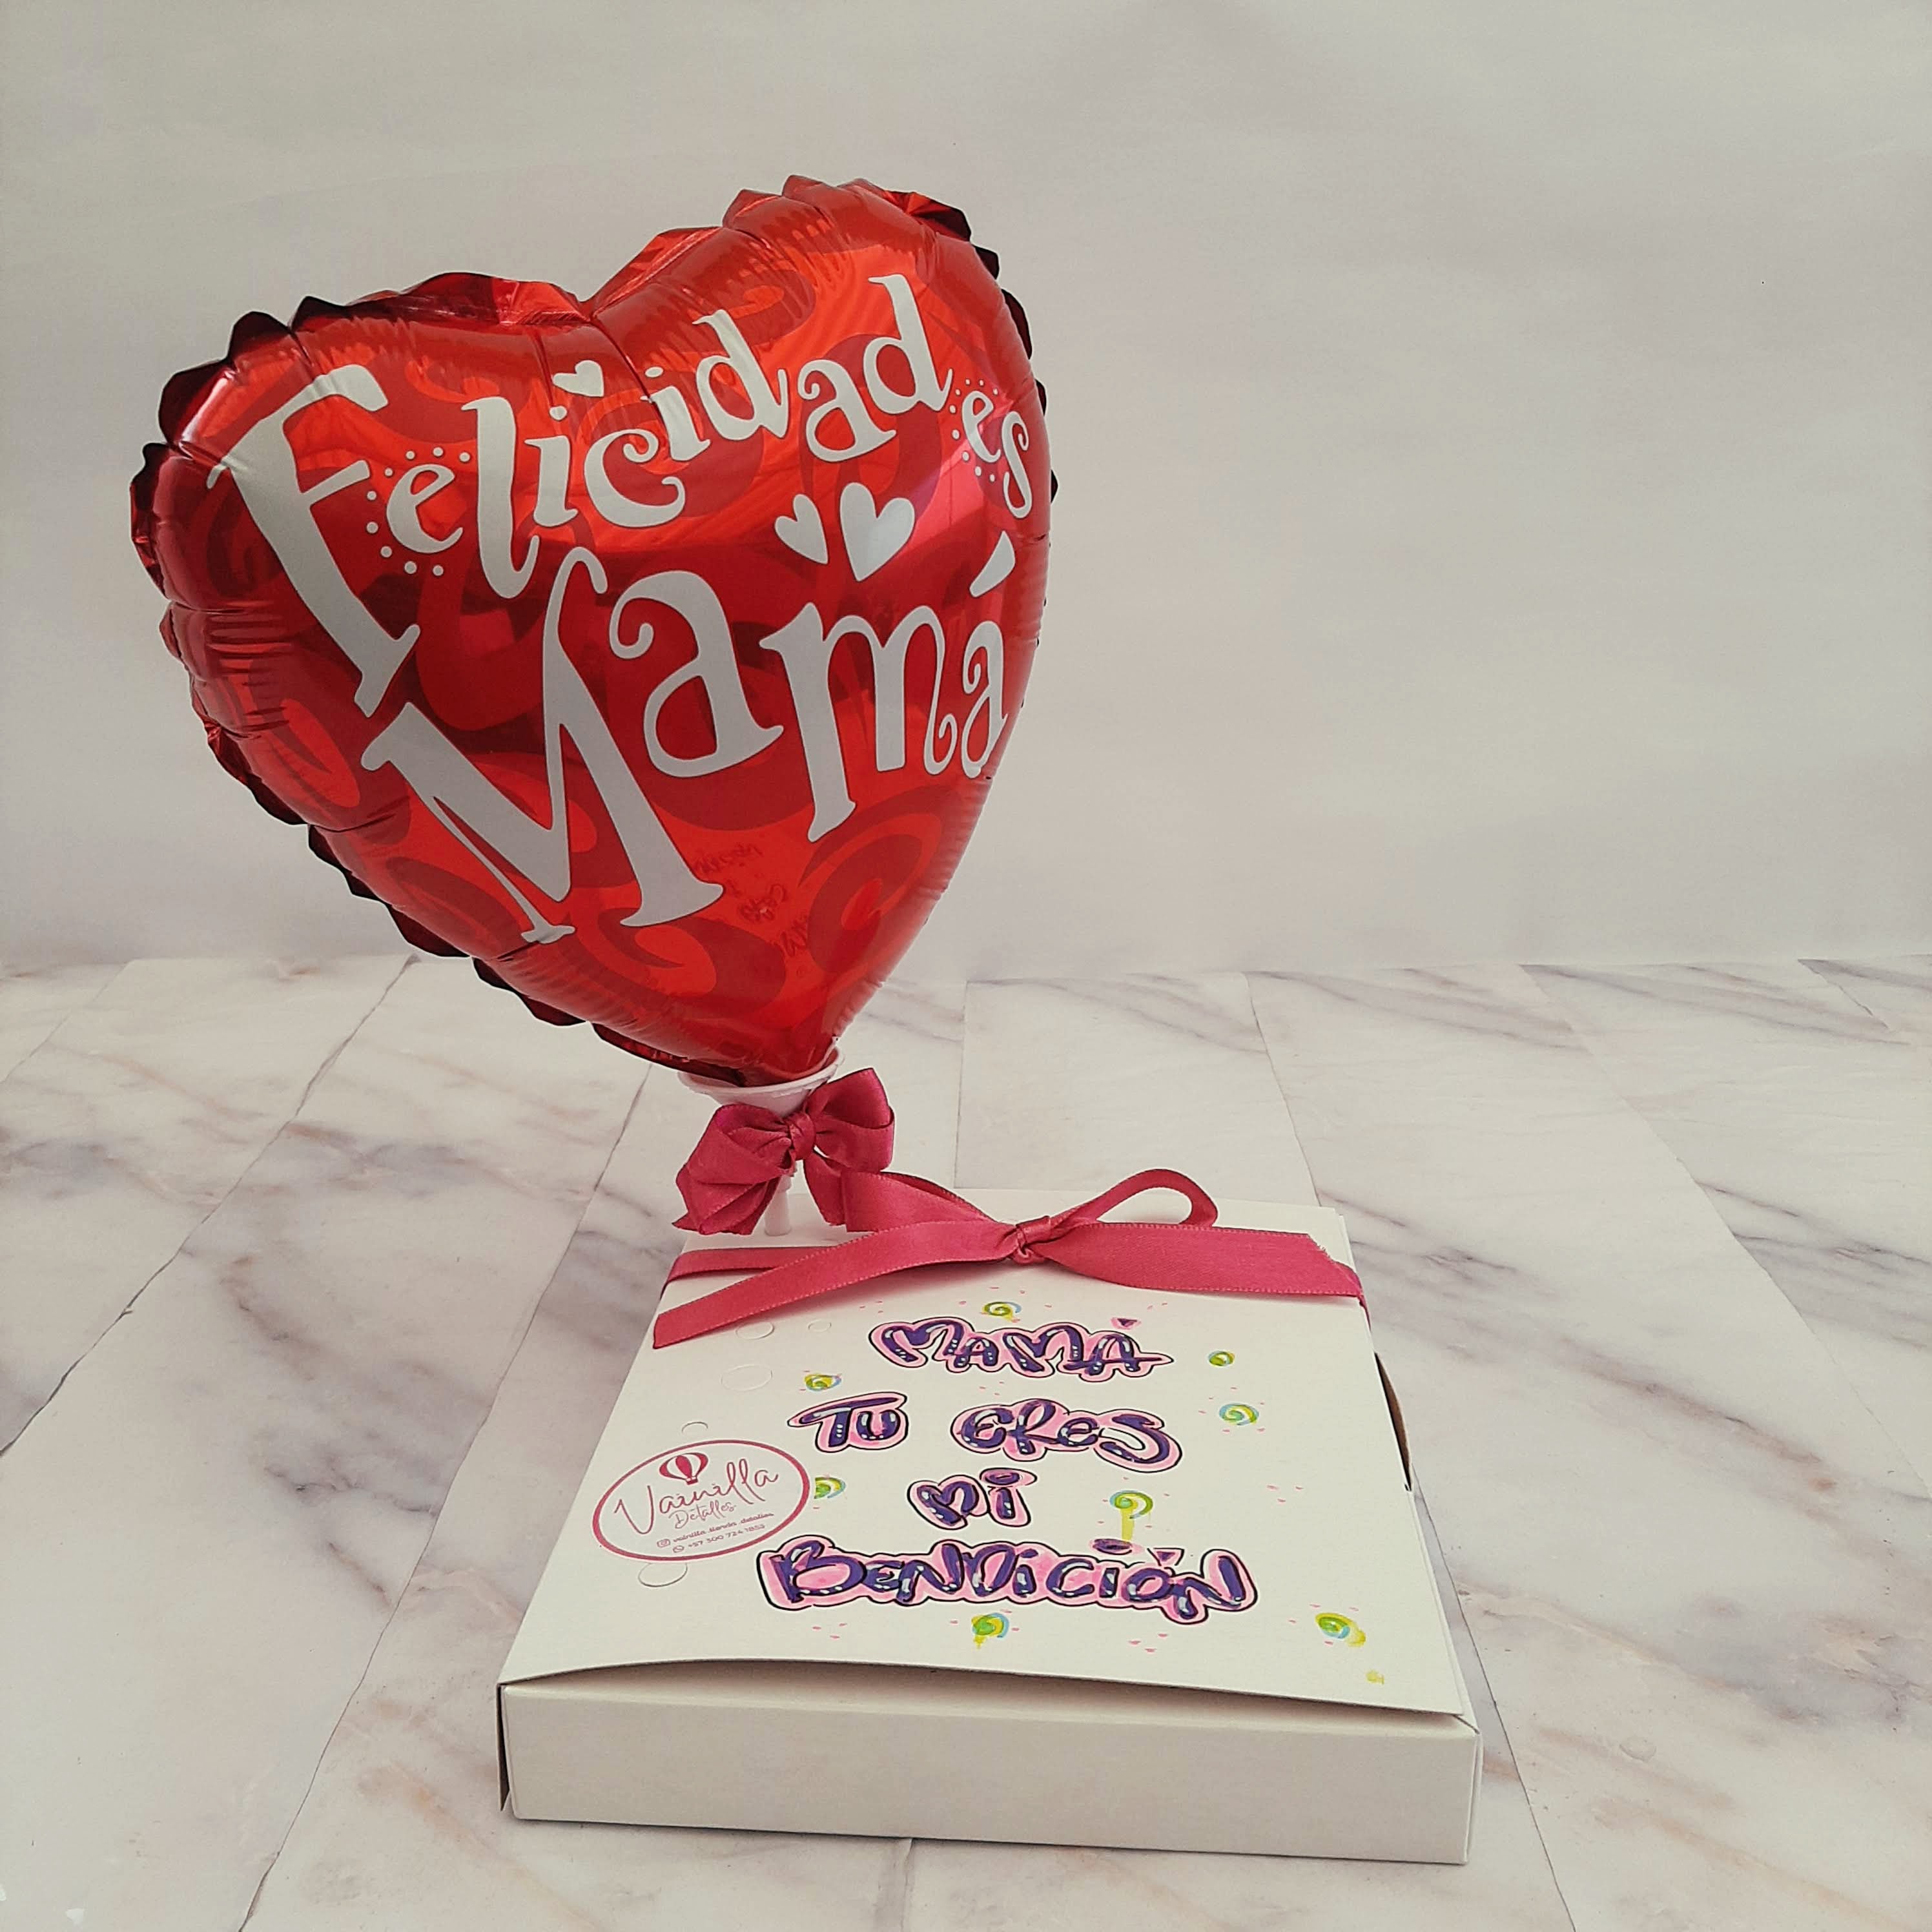 Felicidades
Mamá
MAMÁ
TU ERES
MI
BENDICIÓN
Vainilla
Detalles
vainilla_tienda_detalles
+57 300 724 1853